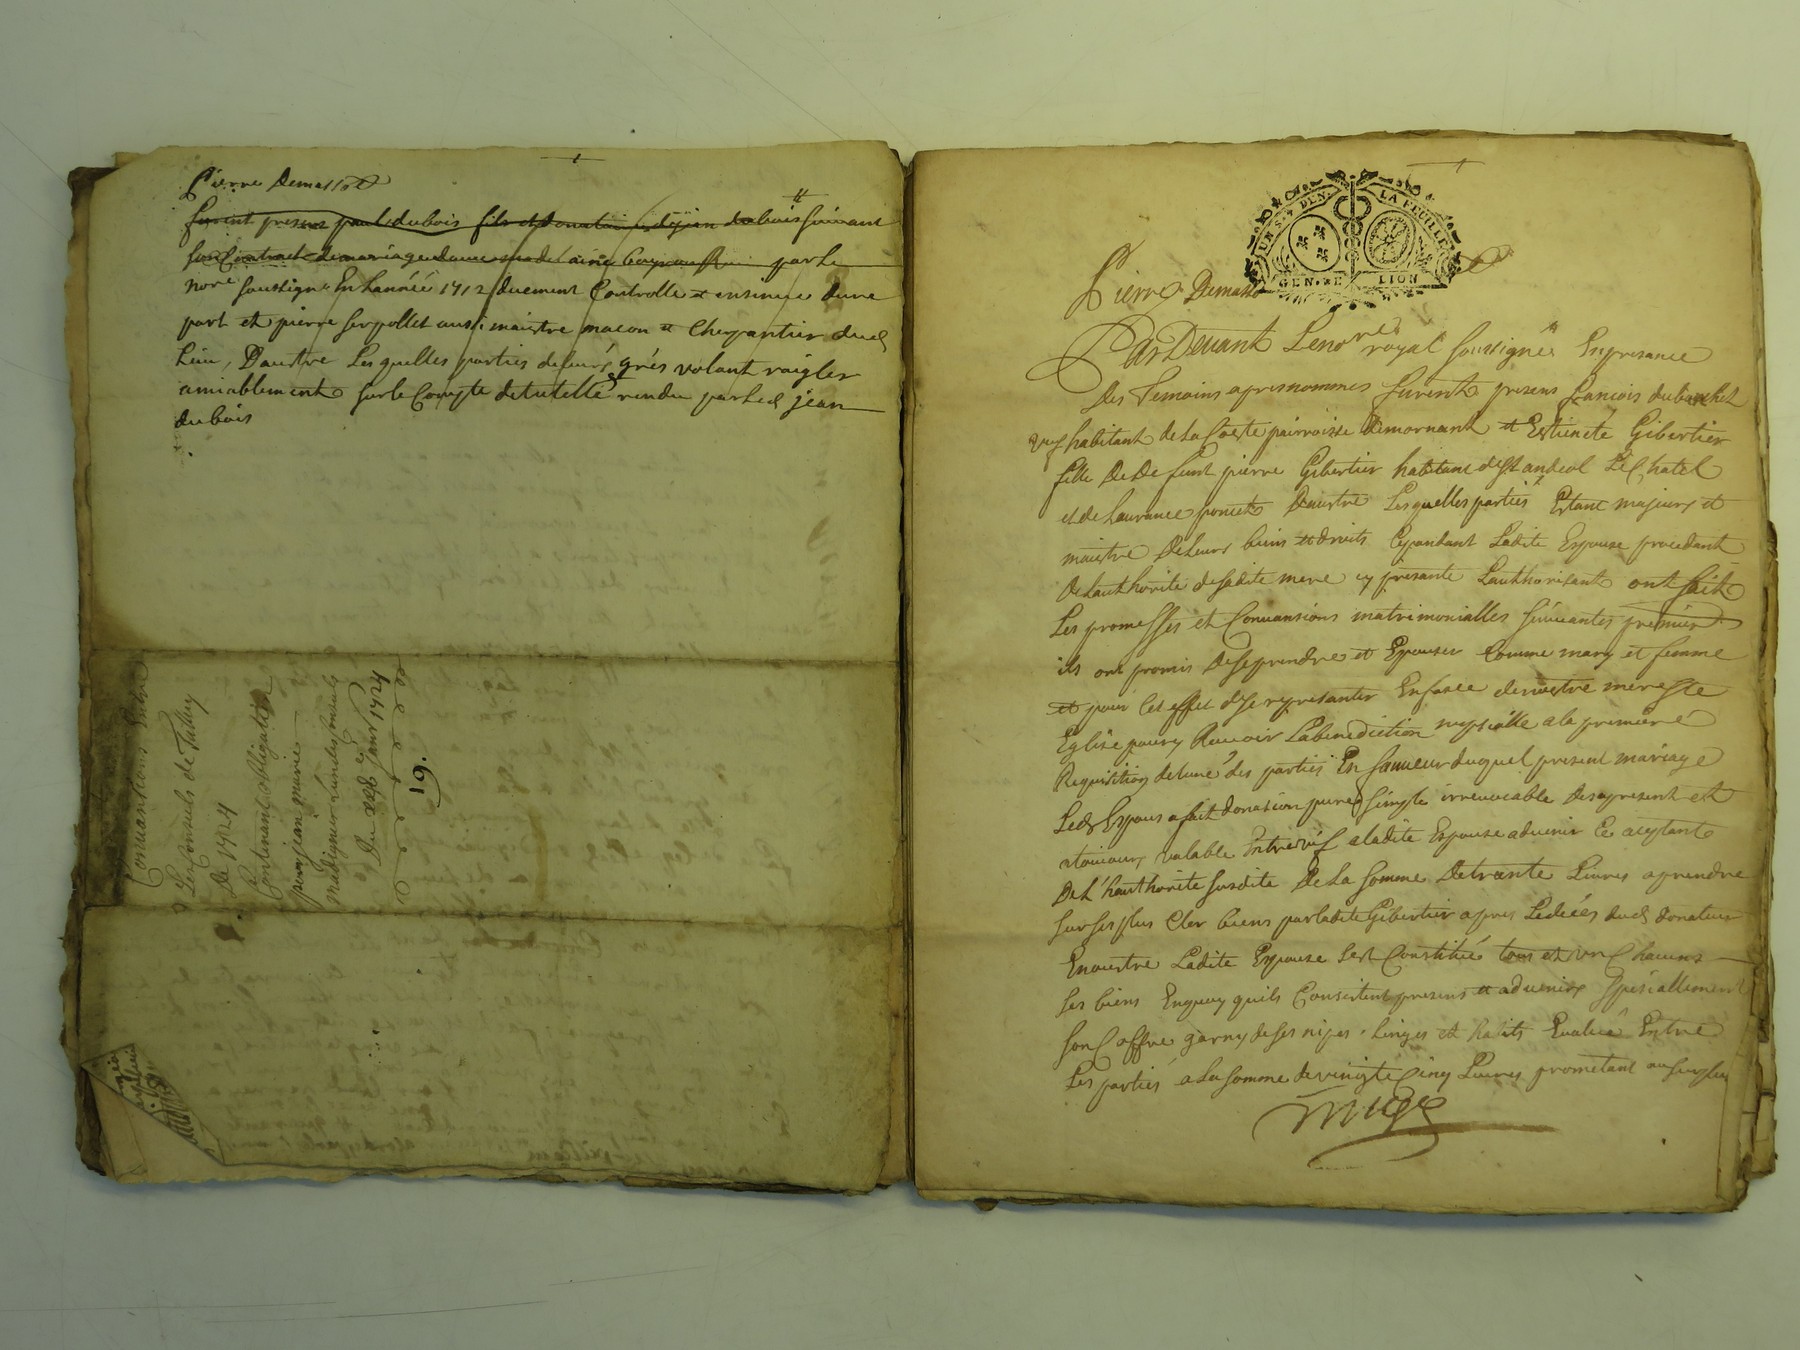 Pierre Demasso
furent presens paul dubois fils et donataire de jean dubois suivant
son Contract de mariage dame madelaine par Le
nore soussigné En Lannéé 1712 duement Controllé et insinué dune
part et pierre serpollet aussi maistre macon et Charpantier dud
Lieu, Dautre Lesquelles parties de leurs grés volant raigler
amiablement sur le Compte de tutelle rendu par Led jean
dubois
Conuantions Entre
Les Consuls de
De 1724
Contenant obligation
pour jean marie
Du xxbe janr 1724
19.
UN S. 4 DEN. LA FEUILLE
GEN. DE LION
Pierre Demasso
Pardeuant Lenore royal soussigné Enpresance
des Temoins apresnommes furent presens francois dubouchet
habitant de La Coste pairroisse de mornant et Estienete Gibertier
fille De De funt pierre Gibertier habitant de St andeol Le Chatel
et de Laurance poncet Dautre Lesquelles parties Estant majeurs et
maistre de Leurs biens et droits Cepandant Ladite Espouse procedant
De Lauthorité de sadite mere cy presante Lauthorisant ont fait
Les promesses et Conuansions matrimonialles suiuantes premier
ils ont promis De se prendre et Epouser Comme mary et femme
et pour Cet effet de se represanter En face de nostre mere Ste
Eglise pour y Receuoir La benediction nupsialle a la premiere
Requisition de Lune des parties En faueur duquel present mariage
Led Espoux a fait donasion pure simple irreuocable Des apresent et
a toujours valable Entre vif a ladite Espouse aduenir Ce aceptant
De L'hauthorité susdite De La somme De trante Liures a prendre
sur ses plus Cler biens par ladite Gibertier apres Le deces dud donateur
En outre Ladite Espouse sest Constitué tous et vn Chacuns
ses biens En quoy quils Consistent presens et aduenir spesiallement
son Coffre garny de ses nipes, linges et habits Eualué Entre
Les parties a La somme de vingt Cinq Liures prometant au surplus